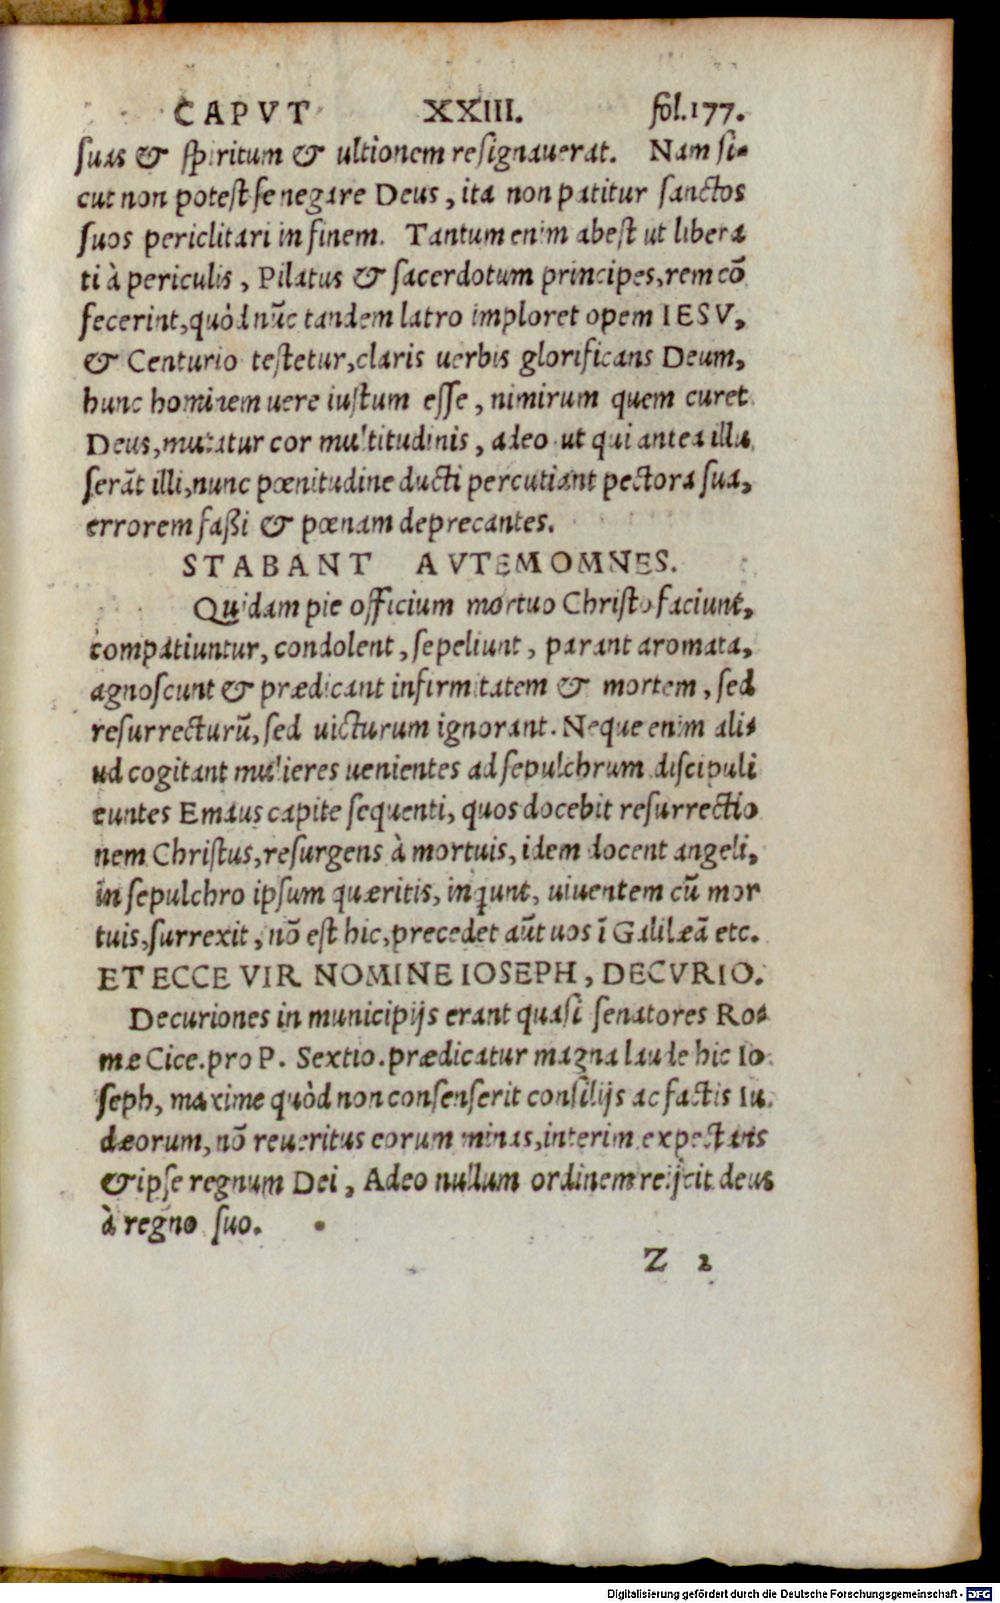 CAPVT XXIII. fol.177.
suas & spiritum & ultionem resignauerat. Nam si-
cut non potest se negare Deus, ita non patitur sanctos
suos periclitari in finem. Tantum enim abest ut libera
ti à periculis, Pilatus & sacerdotum principes, rem cõ
fecerint, quòd nũc tandem latro imploret opem IESV,
& Centurio testetur, claris uerbis glorificans Deum,
hunc hominem uere iustum esse, nimirum quem curet
Deus, mutatur cor multitudinis, adeo ut qui antea illu
serãt illi, nunc pœnitudine ducti percutiant pectora sua,
errorem faßi & pœnam deprecantes.
STABANT AVTEM OMNES.
Quidam pie officium mortuo Christo faciunt,
compatiuntur, condolent, sepeliunt, parant aromata,
agnoscunt & prædicant infirmitatem & mortem, sed
resurrecturũ, sed uicturum ignorant. Neque enim ali-
ud cogitant mulieres uenientes ad sepulchrum discipuli
euntes Emaus capite sequenti, quos docebit resurrectio
nem Christus, resurgens à mortuis, idem docent angeli,
in sepulchro ipsum quæritis, inqunt, uiuentem cũ mor
tuis, surrexit, nõ est hic, precedet aũt uos ĩ Galilæã etc.
ET ECCE VIR NOMINE IOSEPH, DECVRIO.
Decuriones in municipijs erant quasi senatores Ro-
mæ Cice. pro P. Sextio. prædicatur magna laude hic Io
seph, maxime quòd non consenserit consilijs ac factis Iu
dæorum, nõ reueritus eorum minas, interim expectans
& ipse regnum Dei, Adeo nullum ordinem reijcit deus
à regno suo.
Z 2
Digitalisierung gefördert durch die Deutsche Forschungsgemeinschaft - DFG